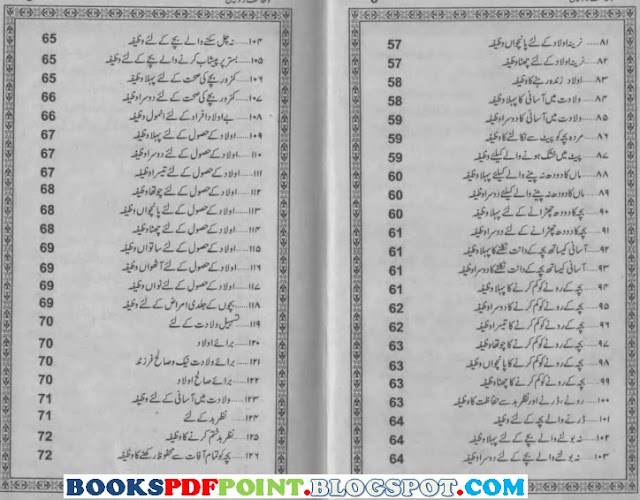 ۸۱......نرینہ اولاد کے لئے پانچواں وظیفہ 57
۸۲......نرینہ اولاد کے لئے چھٹا وظیفہ 57
۸۳......اولاد زندہ رہنے کا وظیفہ 58
۸۴......ولادت میں آسانی کا پہلا وظیفہ 58
۸۵......ولادت میں آسانی کا دوسرا وظیفہ 59
۸۶......مردہ بچہ کو پیٹ سے نکالنے کا وظیفہ 59
۸۷......پیٹ میں خشک ہونے والے کیلئے وظیفہ 59
۸۸......ماں کا دودھ نہ پینے والے کیلئے پہلا وظیفہ 60
۸۹......ماں کا دودھ نہ پینے والے کیلئے دوسرا وظیفہ 60
۹۰......بچہ کا دودھ چھڑانے کے لئے پہلا وظیفہ 60
۹۱......بچہ کا دودھ چھڑانے کے لئے دوسرا وظیفہ 61
۹۲......آسانی کیساتھ بچہ کے دانت نکلنے کا پہلا وظیفہ 61
۹۳......آسانی کیساتھ بچہ کے دانت نکلنے کا دوسرا وظیفہ 61
۹۴......بچہ کے رونے کو کم کرنے کا پہلا وظیفہ 61
۹۵......بچہ کے رونے کو کم کرنے کا دوسرا وظیفہ 62
۹۶......بچہ کے رونے کو کم کرنے کا تیسرا وظیفہ 62
۹۷......بچہ کے رونے کو کم کرنے کا چوتھا وظیفہ 63
۹۸......بچہ کے رونے کو کم کرنے کا پانچواں وظیفہ 63
۹۹......بچہ کے رونے کو کم کرنے کا چھٹا وظیفہ 63
۱۰۰......رونے، ڈرنے اور نظر بد سے حفاظت کا وظیفہ 63
۱۰۱......ڈرنے والے بچہ کے لئے وظیفہ 64
۱۰۲......نہ بولنے والے بچے کے لئے پہلا وظیفہ 64
۱۰۳......نہ بولنے والے بچے کے لئے دوسرا وظیفہ 64
۱۰۴......نہ چل سکنے والے بچے کے لئے وظیفہ 65
۱۰۵......بستر پر پیشاب کرنے والے بچے کے لئے وظیفہ 65
۱۰۶......کمزور بچے کی صحت کے لئے پہلا وظیفہ 65
۱۰۷......کمزور بچے کی صحت کے لئے دوسرا وظیفہ 66
۱۰۸......بے اولاد افراد کے لئے انمول وظیفہ 66
۱۰۹......اولاد کے حصول کے لئے پہلا وظیفہ 67
۱۱۰......اولاد کے حصول کے لئے دوسرا وظیفہ 67
۱۱۱......اولاد کے حصول کے لئے تیسرا وظیفہ 67
۱۱۲......اولاد کے حصول کے لئے چوتھا وظیفہ 68
۱۱۳......اولاد کے حصول کے لئے پانچواں وظیفہ 68
۱۱۴......اولاد کے حصول کے لئے چھٹا وظیفہ 68
۱۱۵......اولاد کے حصول کے لئے ساتواں وظیفہ 69
۱۱۶......اولاد کے حصول کے لئے آٹھواں وظیفہ 69
۱۱۷......اولاد کے حصول کے لئے نواں وظیفہ 69
۱۱۸......بچوں کے جلدی امراض کے لئے وظیفہ 69
۱۱۹......تسہیل ولادت کے لئے 70
۱۲۰......برائے اولاد 70
۱۲۱......برائے ولادت نیک و صالح فرزند 70
۱۲۲......برائے صالح اولاد 70
۱۲۳......ولادت میں آسانی کے لئے وظیفہ 71
۱۲۴......نظر بد کے لئے 71
۱۲۵......نظر بد ختم کرنے کا وظیفہ 72
۱۲۶......بچہ کو تمام آفات سے محفوظ رکھنے کا وظیفہ 72
BOOKSPDFPOINT.BLOGSPOT.COM